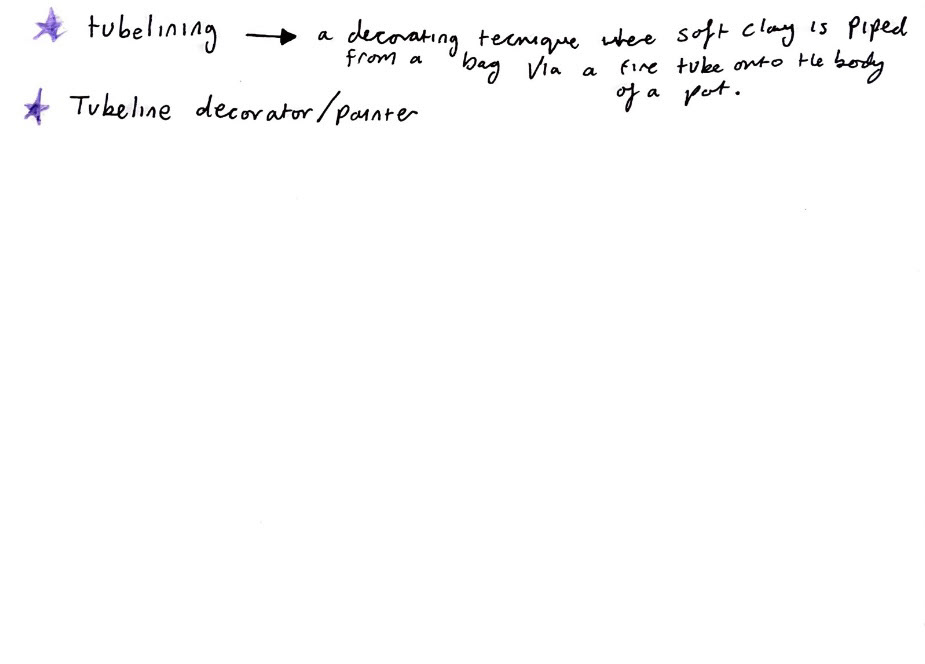 tubelining → a decorating tecnique where soft clay is piped
from a bag via a fine tube onto the body
of a pot.
Tubeline decorator/painter